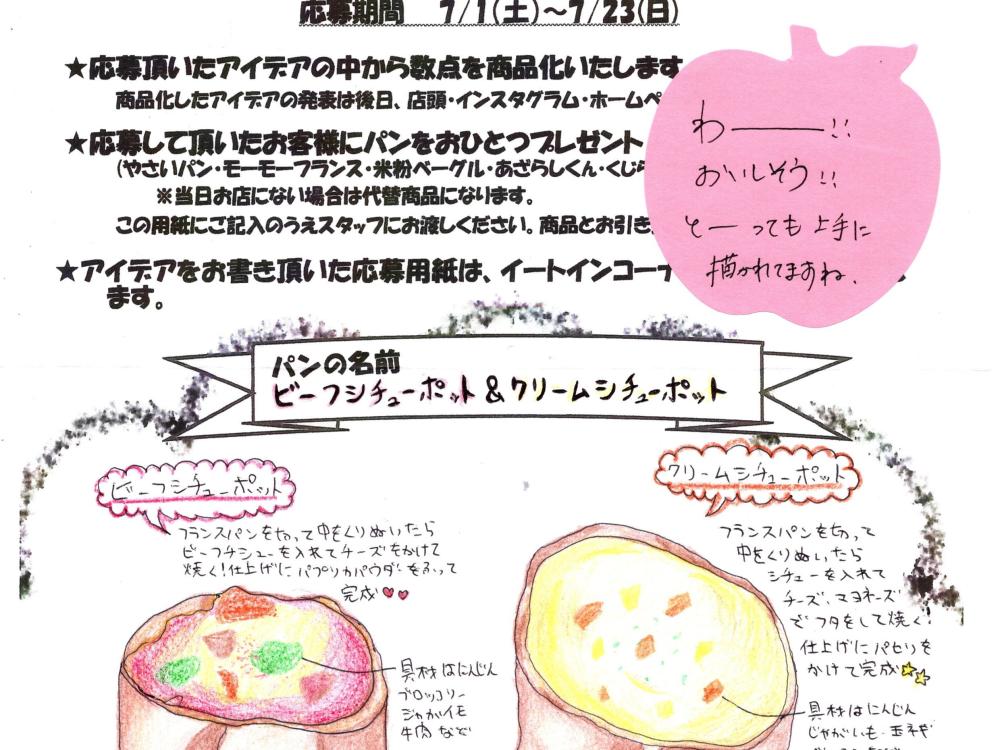 応募期間 7/1(土)～7/23(日)
★応募頂いたアイデアの中から数点を商品化いたします
商品化したアイデアの発表は後日、店頭・インスタグラム・ホームペ
★応募して頂いたお客様にパンをおひとつプレゼント
(やさいパン・モーモーフランス・米粉ベーグル・あざらしくん・くじら
※当日お店にない場合は代替商品になります。
この用紙にご記入のうえスタッフにお渡しください。商品とお引き
★アイデアをお書き頂いた応募用紙は、イートインコーナ
ます。
わー!!
おいしそう!!
とーっても上手に
描かれてますね。
パンの名前
ビーフシチューポット&クリームシチューポット
ビーフシチューポット
フランスパンを切って中をくりぬいたら
ビーフチシューを入れてチーズをかけて
焼く!仕上げにパプリカパウダーをふって
完成♥♥
具材はにんじん
ブロッコリー
ジャガイモ
牛肉など
クリームシチューポット
フランスパンを切って
中をくりぬいたら
シチューを入れて
チーズ、マヨネーズ
でフタをして焼く!
仕上げにパセリを
かけて完成☆☆
具材はにんじん
じゃがいも・玉ネギ